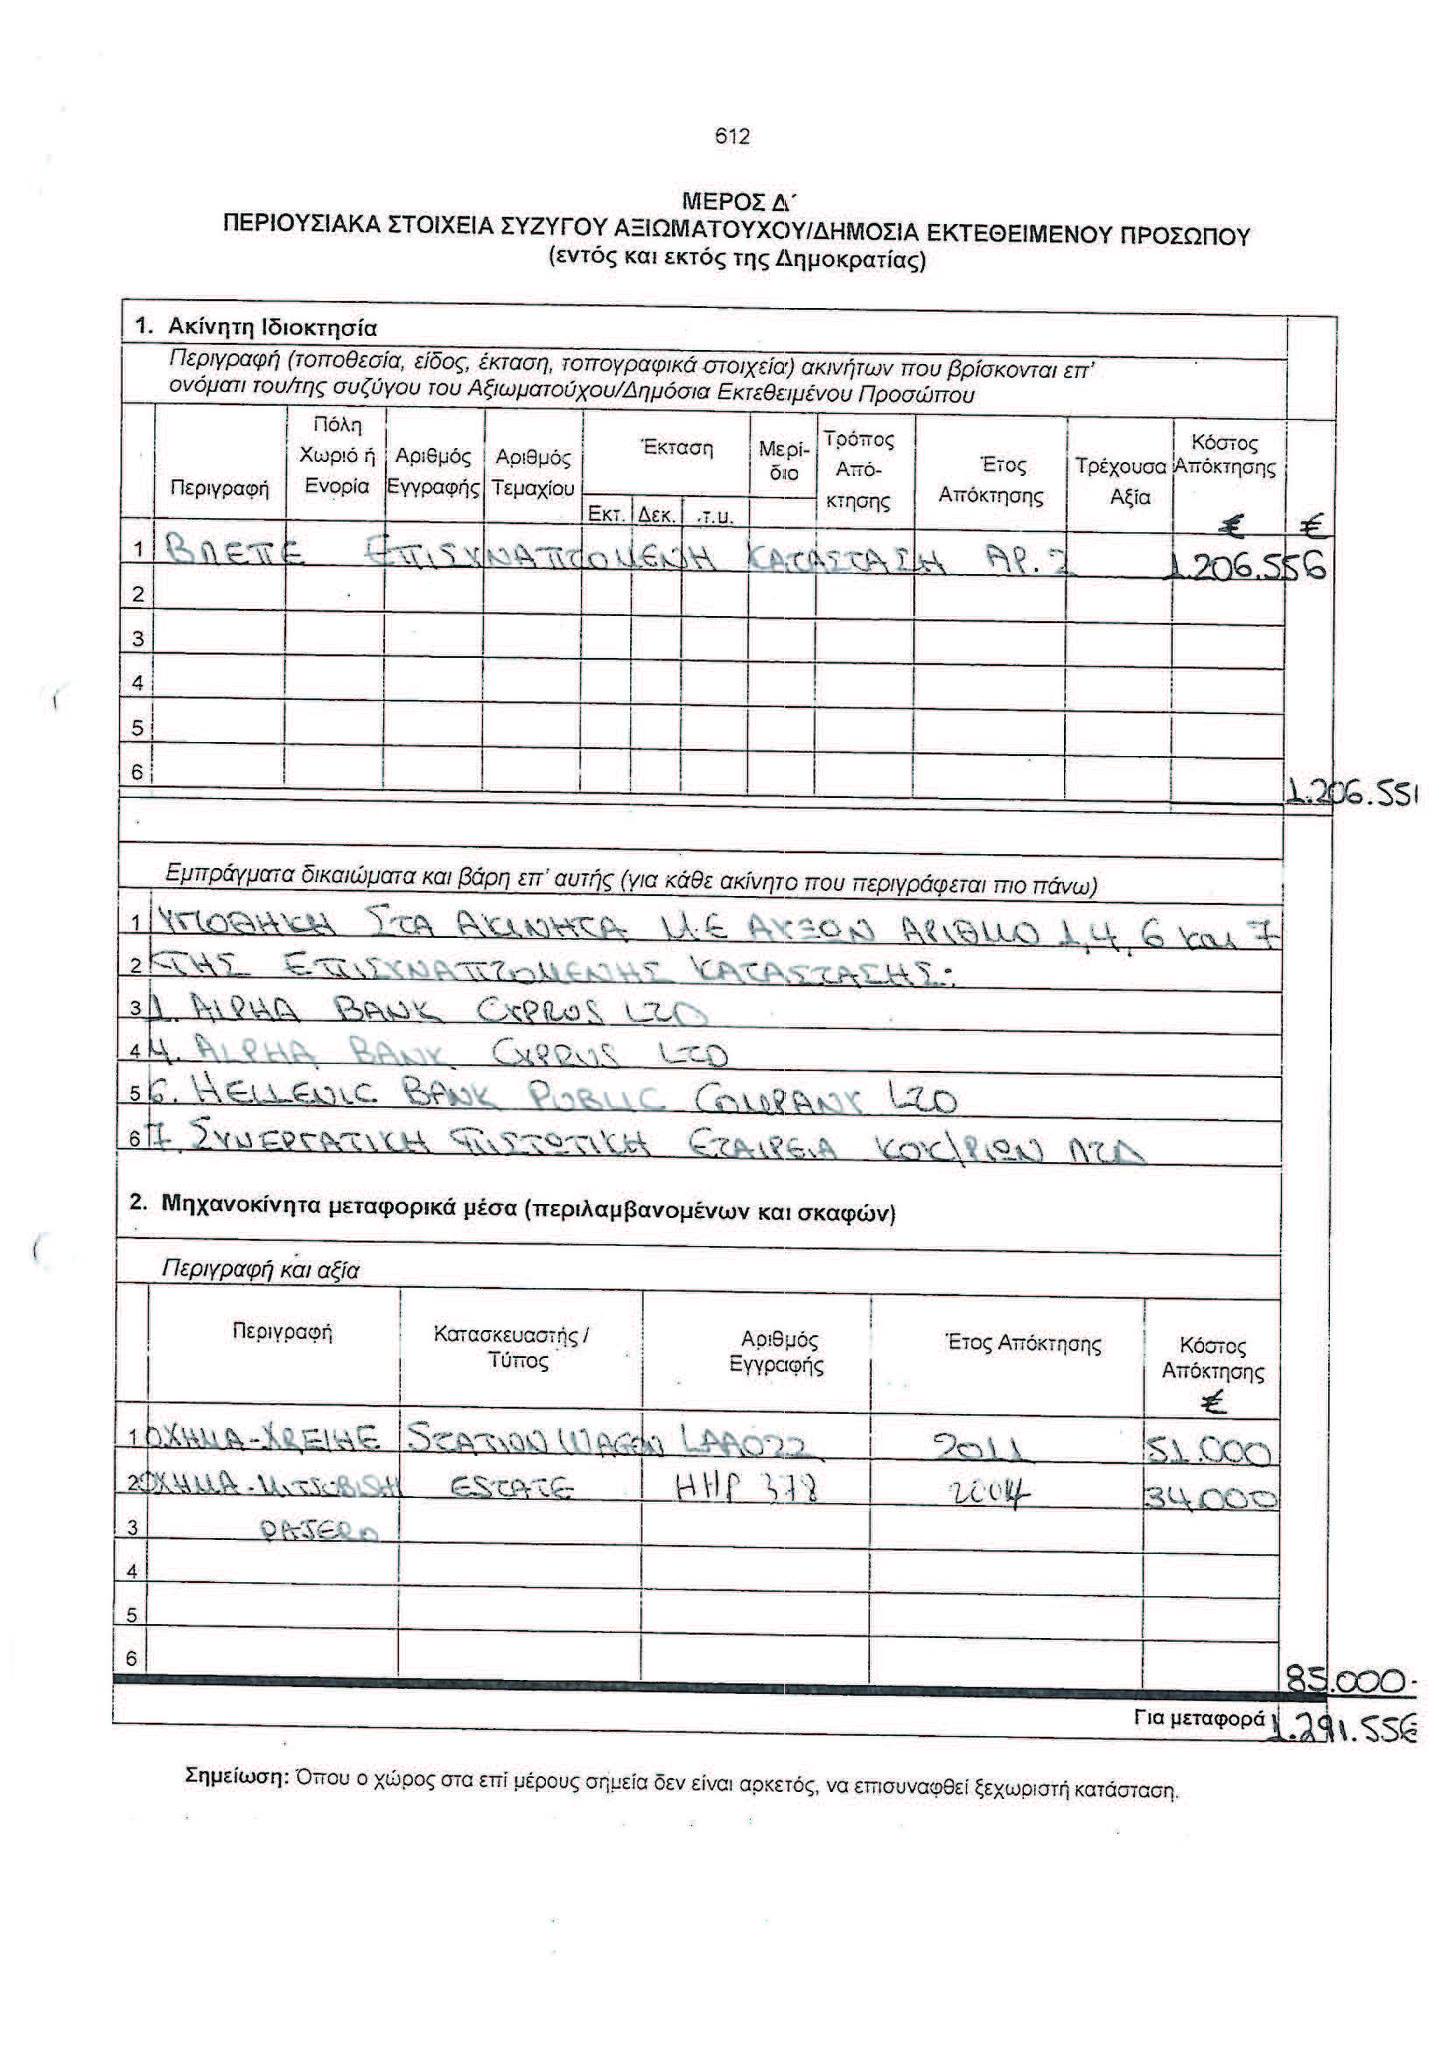 612
ΜΕΡΟΣ Δ΄
ΠΕΡΙΟΥΣΙΑΚΑ ΣΤΟΙΧΕΙΑ ΣΥΖΥΓΟΥ ΑΞΙΩΜΑΤΟΥΧΟΥ/ΔΗΜΟΣΙΑ ΕΚΤΕΘΕΙΜΕΝΟΥ ΠΡΟΣΩΠΟΥ
(εντός και εκτός της Δημοκρατίας)
1. Ακίνητη Ιδιοκτησία
Περιγραφή (τοποθεσία, είδος, έκταση, τοπογραφικά στοιχεία) ακινήτων που βρίσκονται επ'
ονόματι του/της συζύγου του Αξιωματούχου/Δημόσια Εκτεθειμένου Προσώπου
Περιγραφή Πόλη Χωριό ή Ενορία Αριθμός Εγγραφής Αριθμός Τεμαχίου Έκταση Εκτ. Δεκ. τ.μ. Μερί-διο Τρόπος Από-κτησης Έτος Απόκτησης Τρέχουσα Αξία Κόστος Απόκτησης € €
1 ΒΛΕΠΕ ΕΠΙΣΥΝΑΠΤΟΜΕΝΗ ΚΑΤΑΣΤΑΣΗ ΑΡ. 2 1.206.556
2
3
4
5
6 1.206.551
Εμπράγματα δικαιώματα και βάρη επ' αυτής (για κάθε ακίνητο που περιγράφεται πιο πάνω)
1 ΥΠΟΘΗΚΗ ΣΤΑ ΑΚΙΝΗΤΑ Μ.Ε ΑΥΞΩΝ ΑΡΙΘΜΟ 1,4,6 και 7
2 ΤΗΣ ΕΠΙΣΥΝΑΠΤΟΜΕΝΗΣ ΚΑΤΑΣΤΑΣΗΣ:
3 1. ALPHA BANK CYPRUS LTD
4 4. ALPHA BANK CYPRUS LTD
5 6. HELLENIC BANK PUBLIC COMPANY LTD
6 7. ΣΥΝΕΡΓΑΤΙΚΗ ΠΙΣΤΩΤΙΚΗ ΕΤΑΙΡΕΙΑ ΛΤΔ
2. Μηχανοκίνητα μεταφορικά μέσα (περιλαμβανομένων και σκαφών)
Περιγραφή και αξία
Περιγραφή Κατασκευαστής / Τύπος Αριθμός Εγγραφής Έτος Απόκτησης Κόστος Απόκτησης €
1 ΟΧΗΜΑ- STATION WAGEN LAA022 2011 51.000
2 ΟΧΗΜΑ-MITSUBISHI ESTATE HHP 378 2004 34.000
3 PAJERO
4
5
6 85.000.
Για μεταφορά 1.291.556
Σημείωση: Όπου ο χώρος στα επί μέρους σημεία δεν είναι αρκετός, να επισυναφθεί ξεχωριστή κατάσταση.